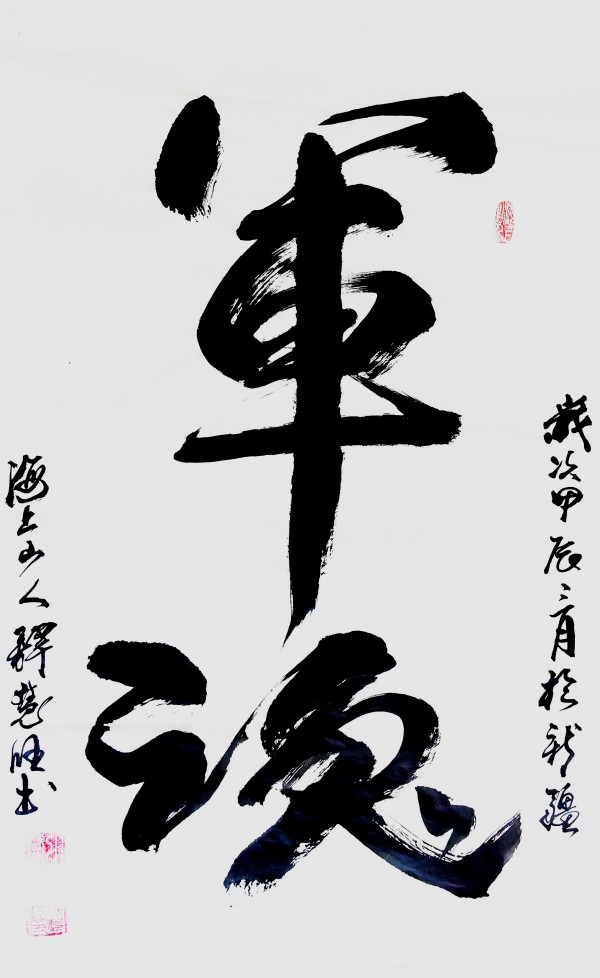 軍魂
歲次甲辰三月於新疆
海上山人釋慧旺书